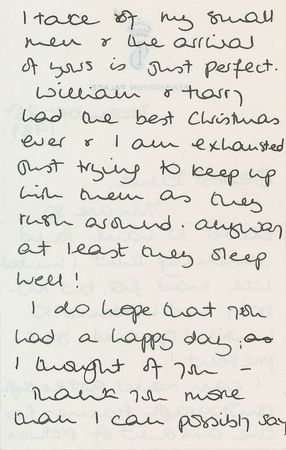 I take of my small
men & the arrival
of yours is just perfect.
William & Harry
had the best Christmas
ever & I am exhausted
just trying to keep up
with them as they
rush around. anyway
at least they sleep
well!
I do hope that you
had a happy day.
I thought of you -
Thank you more
than I can possibly say